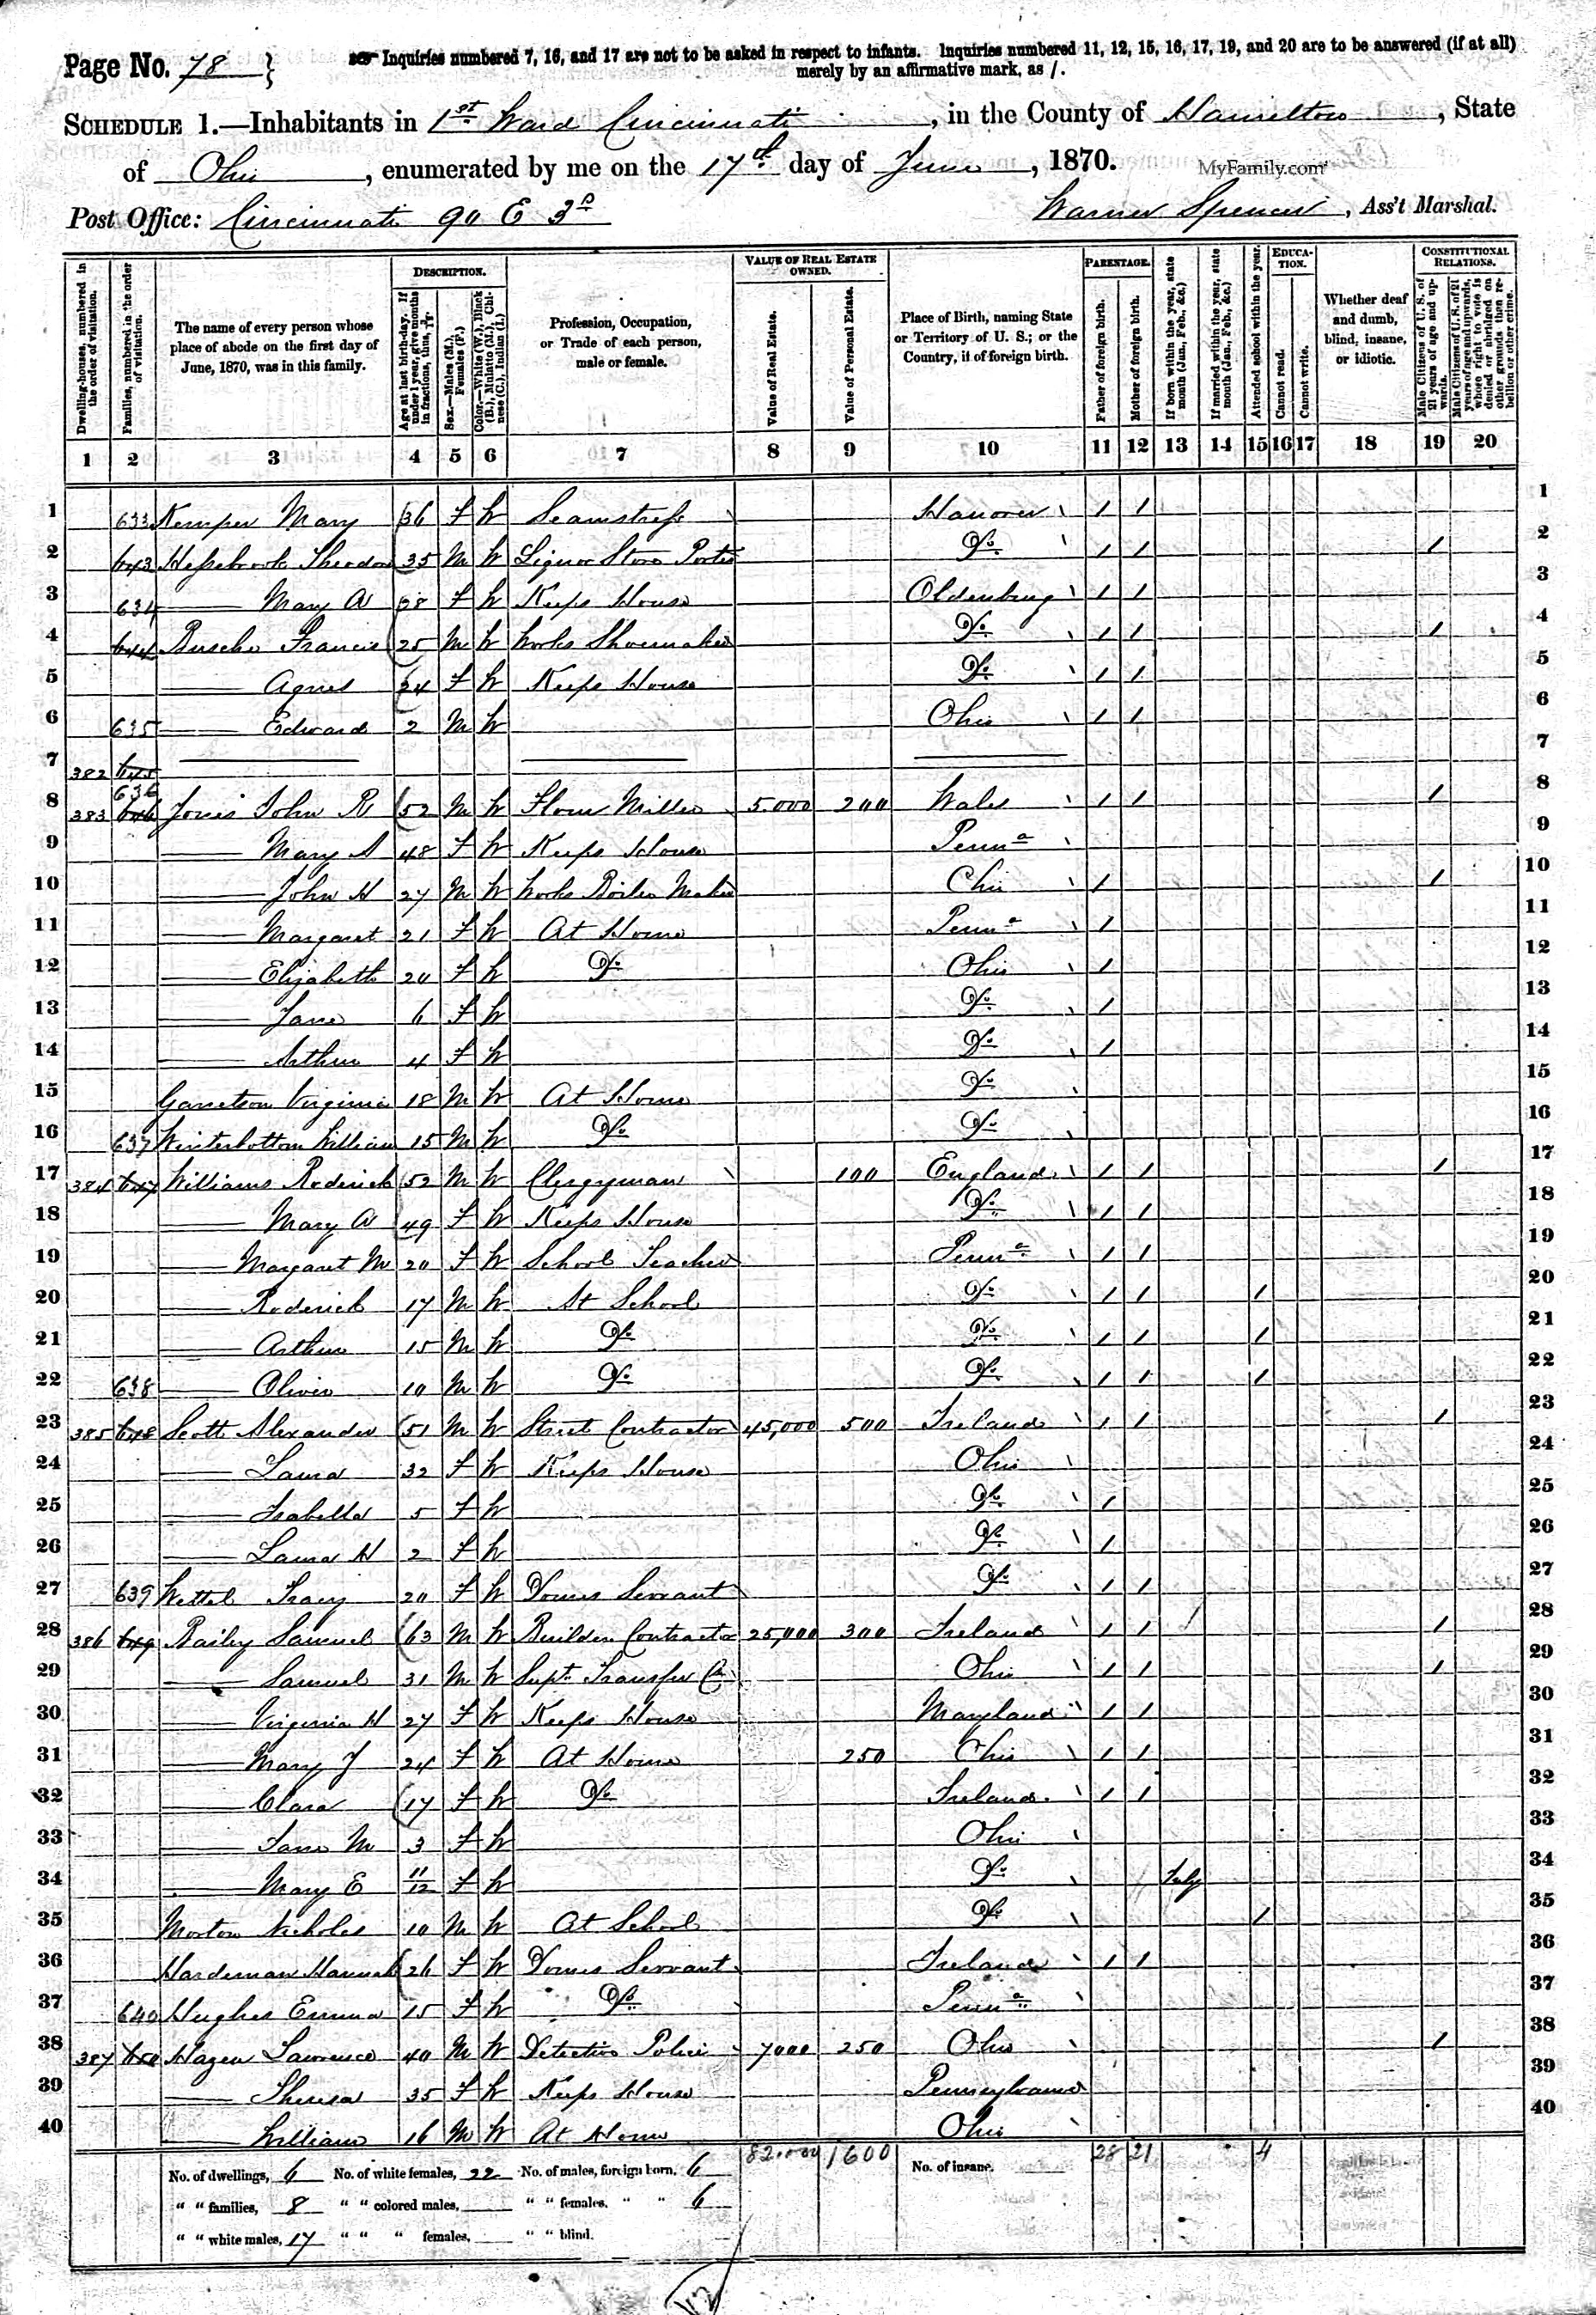 Page No. 78 }
Inquiries numbered 7, 16, and 17 are not to be asked in respect to infants. Inquiries numbered 11, 12, 15, 16, 17, 19, and 20 are to be answered (if at all)
merely by an affirmative mark, as /.
SCHEDULE 1.—Inhabitants in 1st Ward Cincinnati, in the County of Hamilton, State
of Ohio, enumerated by me on the 17th day of June, 1870.
MyFamily.com
Post Office: Cincinnati 90 E 3d Warner Spencer, Ass't Marshal.
Dwelling-houses, numbered in the order of visitation.
Families, numbered in the order of visitation.
The name of every person whose place of abode on the first day of June, 1870, was in this family.
DESCRIPTION.
Age at last birth-day. If under 1 year, give months in fractions, thus, 3/12
Sex.—Males (M.), Females (F.)
Color.—White (W.), Black (B.), Mulatto (M.), Chinese (C.), Indian (I.)
Profession, Occupation, or Trade of each person, male or female.
VALUE OF REAL ESTATE OWNED.
Value of Real Estate.
Value of Personal Estate.
Place of Birth, naming State or Territory of U. S.; or the Country, if of foreign birth.
PARENTAGE.
Father of foreign birth.
Mother of foreign birth.
If born within the year, state month (Jan., Feb., &c.)
If married within the year, state month (Jan., Feb., &c.)
Attended school within the year.
EDUCATION.
Cannot read.
Cannot write.
Whether deaf and dumb, blind, insane, or idiotic.
CONSTITUTIONAL RELATIONS.
Male Citizens of U. S. of 21 years of age and upwards.
Male Citizens of U. S. of 21 years of age and upwards, whose right to vote is denied or abridged on other grounds than rebellion or other crime.
1 2 3 4 5 6 7 8 9 10 11 12 13 14 15 16 17 18 19 20
1 633 Kemper Mary 36 F W Seamstress Hanover / / 1
2 643 Theodore 35 M W Liquor Store Porter Do / / / 2
3 634 — Mary A 28 F W Keeps House Oldenburg / / 3
4 644 Busche Francis 25 M W Works Shoemaker Do / / / 4
5 — Agnes 24 F W Keeps House Do / / 5
6 635 — Edward 2 M W Ohio / / 6
7 382 645 — — — 7
8 383 636 646 Jones John R 52 M W Flour Miller 5.000 200 Wales / / / 8
9 — Mary A 48 F W Keeps House Penna 9
10 — John H 27 M W Works Boiler Maker Ohio / / 10
11 — Margaret 21 F W At Home Penna / 11
12 — Elizabeth 20 F W Do Ohio / 12
13 — Jane 6 F W Do / 13
14 — Arthur 4 F W Do / 14
15 Garretson Virginia 18 M W At Home Do 15
16 637 Winterbottom William 15 M W Do Do 16
17 384 647 Williams Roderick 52 M W Clergyman 100 England / / / 17
18 — Mary A 49 F W Keeps House Do / / 18
19 — Margaret M 20 F W School Teacher Penna / / 19
20 — Roderick 17 M W At School Do / / / 20
21 — Arthur 15 M W Do Do / / / 21
22 638 — Oliver 10 M W Do Do / / / 22
23 385 648 Scott Alexander 51 M W Street Contractor 45,000 500 Ireland / / / 23
24 — Laura 32 F W Keeps House Ohio 24
25 — Isabella 5 F W Do / 25
26 — Laura H 2 F W Do / 26
27 639 Wettel Tracy 20 F W Domes Servant Do / / 27
28 386 649 Bailey Samuel 63 M W Builder Contractor 25,000 300 Ireland / / / 28
29 — Samuel 31 M W Supt. Transfer Co Ohio / / / 29
30 — Virginia H 27 F W Keeps House Maryland / / 30
31 — Mary J 24 F W At Home 250 Ohio / / 31
32 — Clara 17 F W Do Ireland / / 32
33 — Jane M 3 F W Ohio 33
34 — Mary E 11/12 F W Do July 34
35 Morton Nicholas 10 M W At School Do / 35
36 Hardeman Hannah 26 F W Domes Servant Ireland / / 36
37 640 Hughes Emma 15 F W Do Penna 37
38 387 650 Hazen Lawrence 40 M W Detective Police 7000 250 Ohio / 38
39 — Theresa 35 F W Keeps House Pennsylvania 39
40 — William 16 M W At Home Ohio 40
82.000 1600 28 21 4
No. of dwellings, 6 No. of white females, 22 No. of males, foreign born, 6 No. of insane,
" " families, 8 " " colored males, " " females, " " 6
" " white males, 17 " " " females, " " blind.